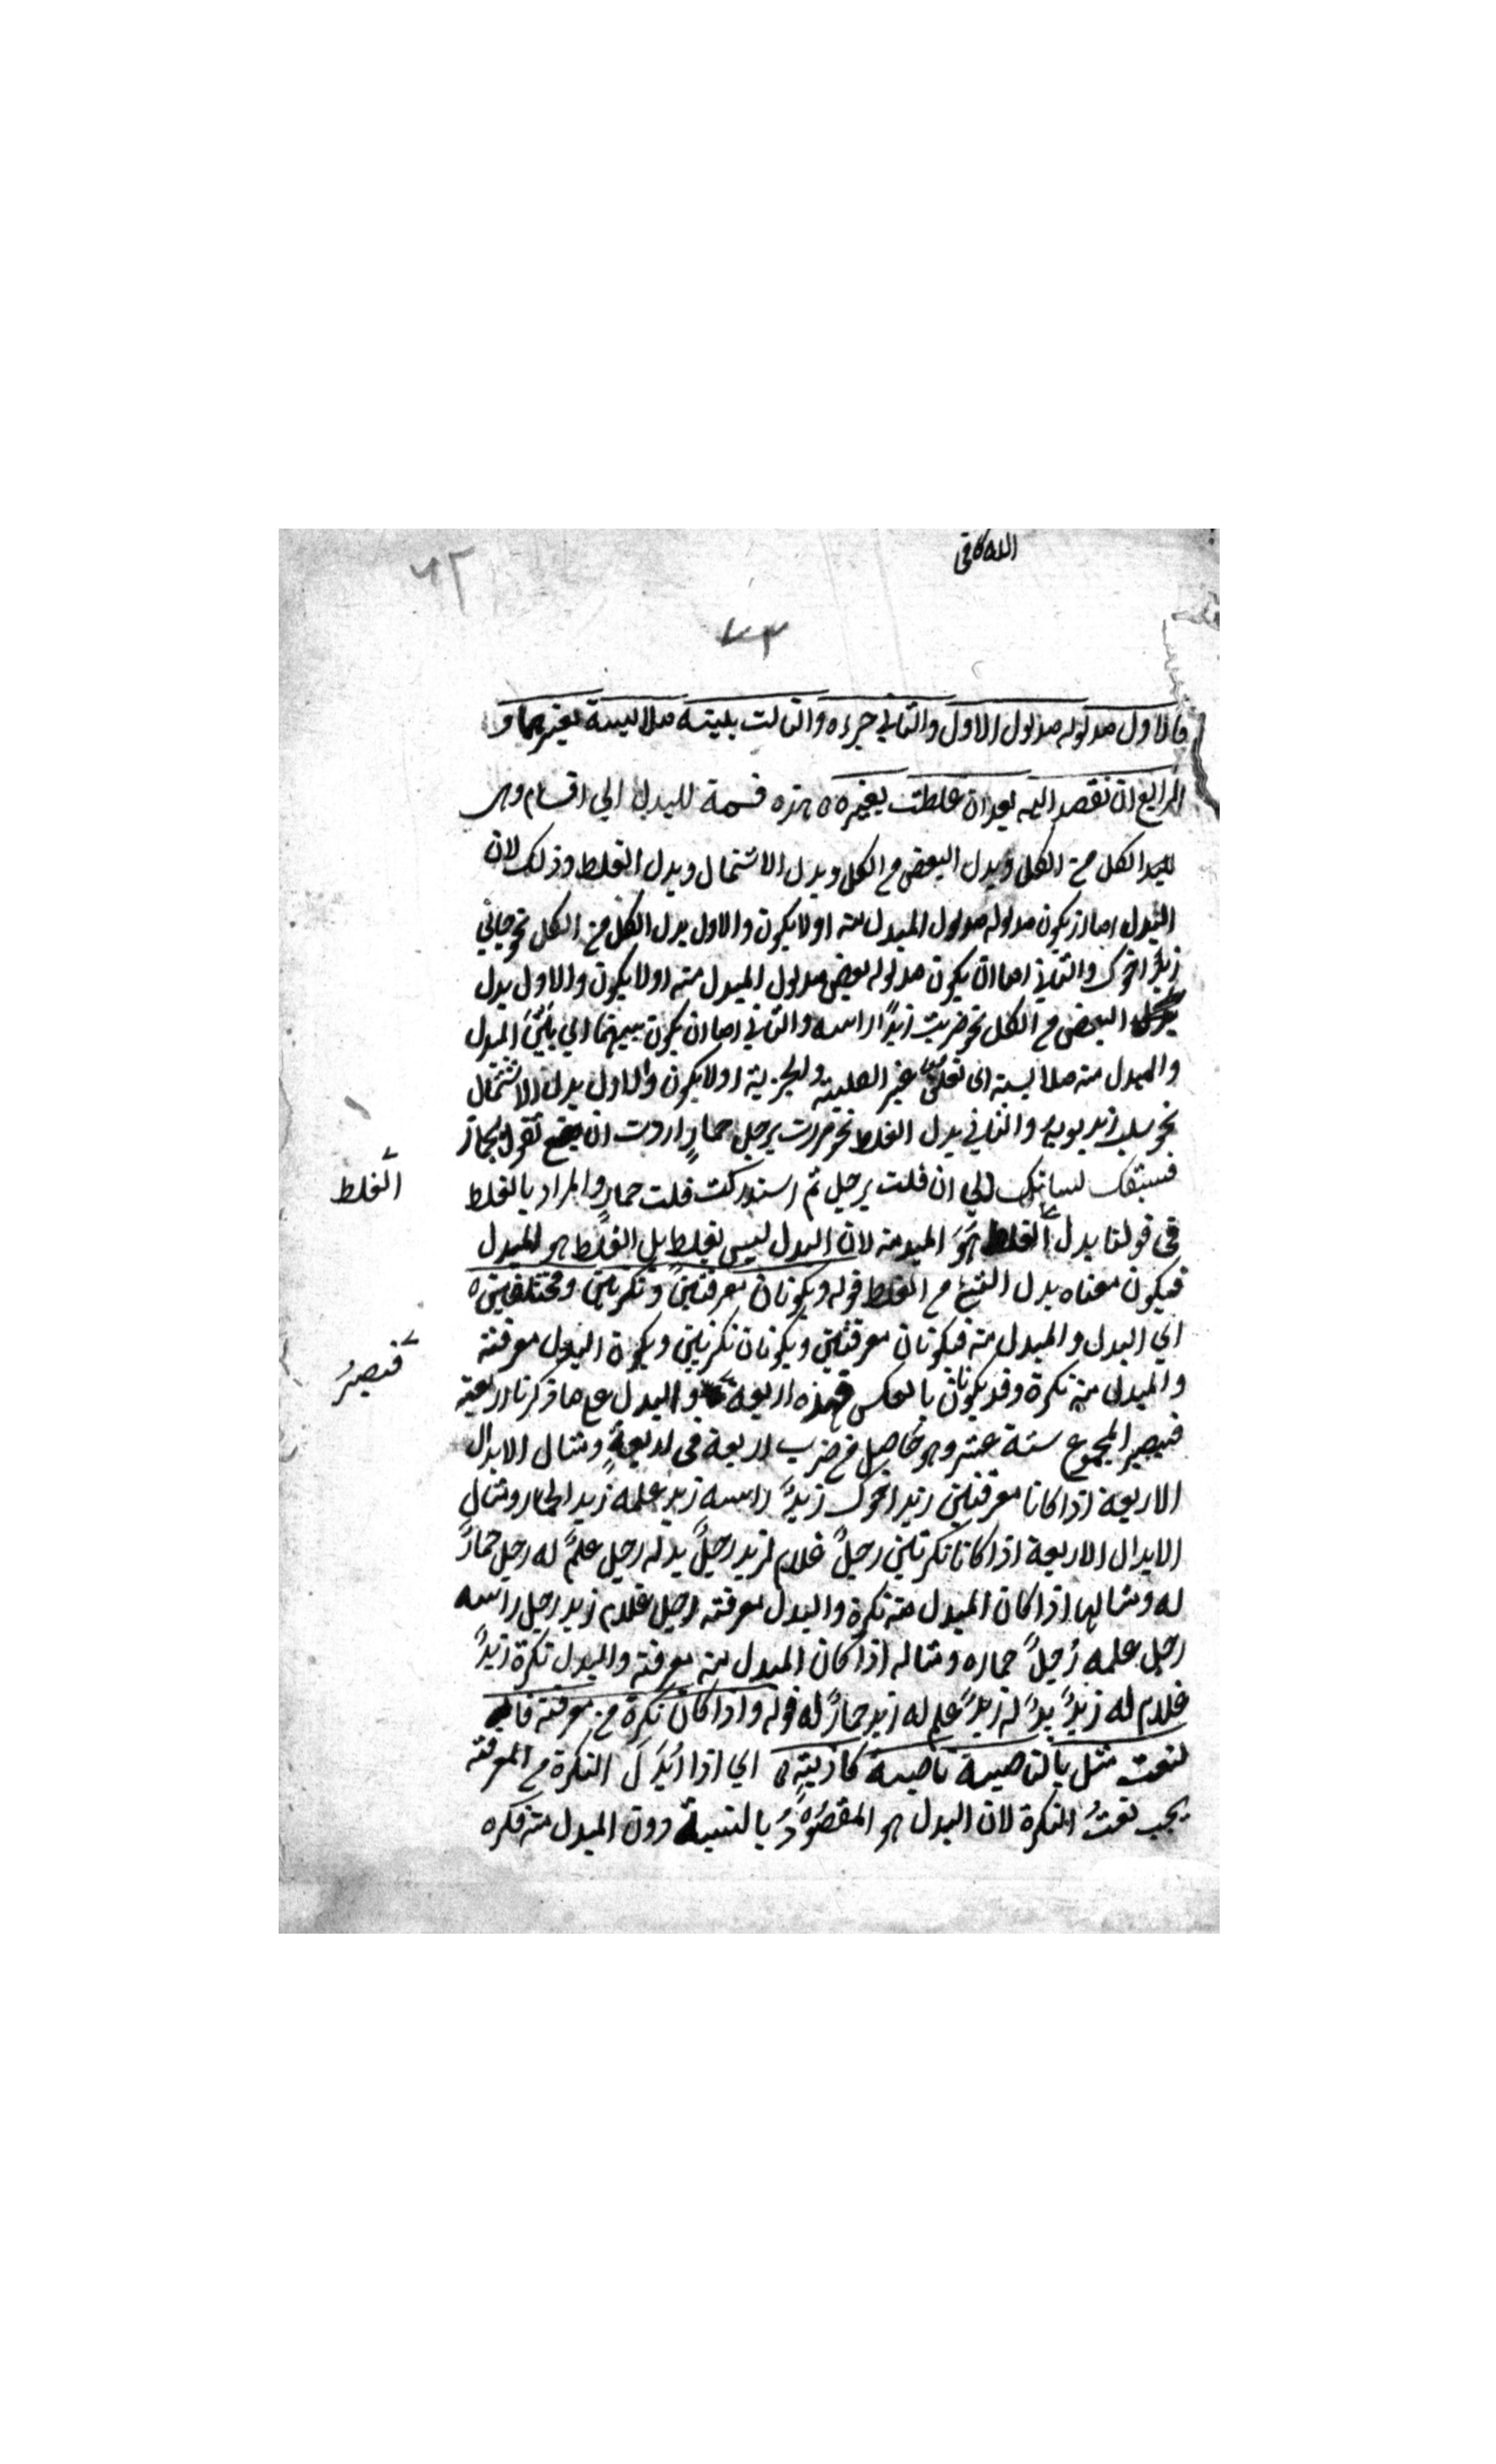 الله كافى
٦٢
٧٣
فالاول مدلوله مدلول الاول والثاني جزءه والثالث بينه ملابسة بغيرهما و
الرابع ان تقصد اليه بعد ان غلطت بغيره هذه قسمة للبدل الي اقسام وهى
الكل من الكل وبدل البعض من الكل وبدل الاشتمال وبدل الغلط وذلك لان
البدل اما ان يكون مدلوله مدلول المبدل منه او لا يكون والاول بدل الكل من الكل نحو جاني
زيدٌ اخوك والثاني اما ان يكون مدلوله بعض مدلول المبدل منه او لا يكون والاول بدل
البعض من الكل نحو ضربت زيدًا راسه والثاني اما ان يكون بينهما اي بَيْنَ المبدل
والمبدل منه ملابسة اى تعلق غير الكلية والجزئية او لا يكون والاول بدل الاشتمال
نحو سلب زيد ثوبه والثاني بدل الغلط نحو مررت برجل حمارٍ اردت ان تقول بحمار
فسبقك لسانك الي ان قلت برجل ثم استدركت فقلت حمارٍ والمراد بالغلط
الغلط
فى قولنا بدل الغلط هُوَ المبدل منه لان البدل ليس بغلط بل الغلط هو المبدل
فيكون معناه بدل الشئ من الغلط قوله ويكونان معرفتين ونكرتين ومختلفين ه
اي البدل والمبدل منه فيكونان معرفتين ويكونان نكرتين ويكون البدل معرفة
فيصيرُ
والمبدل منه نكرة وقد يكونان بالعكس فهذه اربعة والبدل على ما ذكرنا اربعة
فيصير المجموع ستة عشر وهو حاصل من ضرب اربعة فى اربعةٍ ومثال الابدال
الاربعة اذا كانا معرفتين زيد اخوك زيدٌ راسه زيد علمه زيد الحمار ومثال
الابدال الاربعة اذا كانا نكرتين رجلٌ غلام لزيد رجلٌ يد له رجل علمٌ له رجل حمارٌ
له ومثالها اذا كان المبدل منه نكرة والبدل معرفة رجل غلام زيد رجل راسه
رجل علمه رُجلٌ حماره ومثاله اذا كان المبدل منه معرفة والبدل نكرة زيدٌ
غلام له زيدٌ يدٌ له زيدٌ علم له زيد حمارٌ له قوله واذا كان نكرة من معرفة
لنعت مثل بالناصية ناصية كاذبةٍ اي اذا اُبْدِلَ النكرة من المعرفة
يجب نعتُ النكرة لان البدل هو المقصُودُ بالنسبة دون المبدل منه فكره